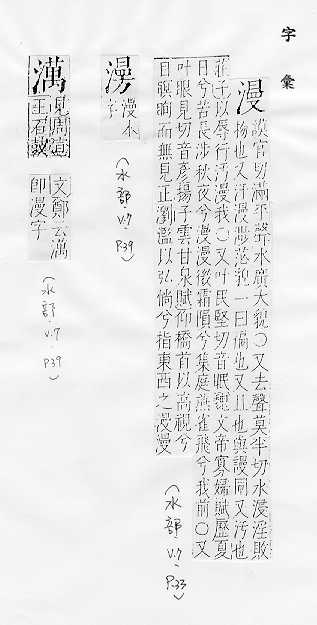 字彙
漫
謨官切滿平聲水廣大貌〇又去聲莫半切水浸淫敗
物也又汗漫渺茫貌一曰徧也又且也與謾同又汚也
莊子以辱行汚漫我〇又叶民堅切音眠魏文帝寡婦賦歷夏
日兮苦長涉秋夜兮漫漫微霜隕兮集庭燕雀飛兮我前〇又
叶眼見切音彦揚子雲甘泉賦仰橋首以高視兮
目瞑眴而無見正瀏濫以弘惝兮指東西之漫漫
(水部 V.7 P.33)
澷
漫本
字
(水部 V.7 P39)
澫
見周宣
王石鼓
文鄭云澫
即漫字
(水部 V.7 P39)